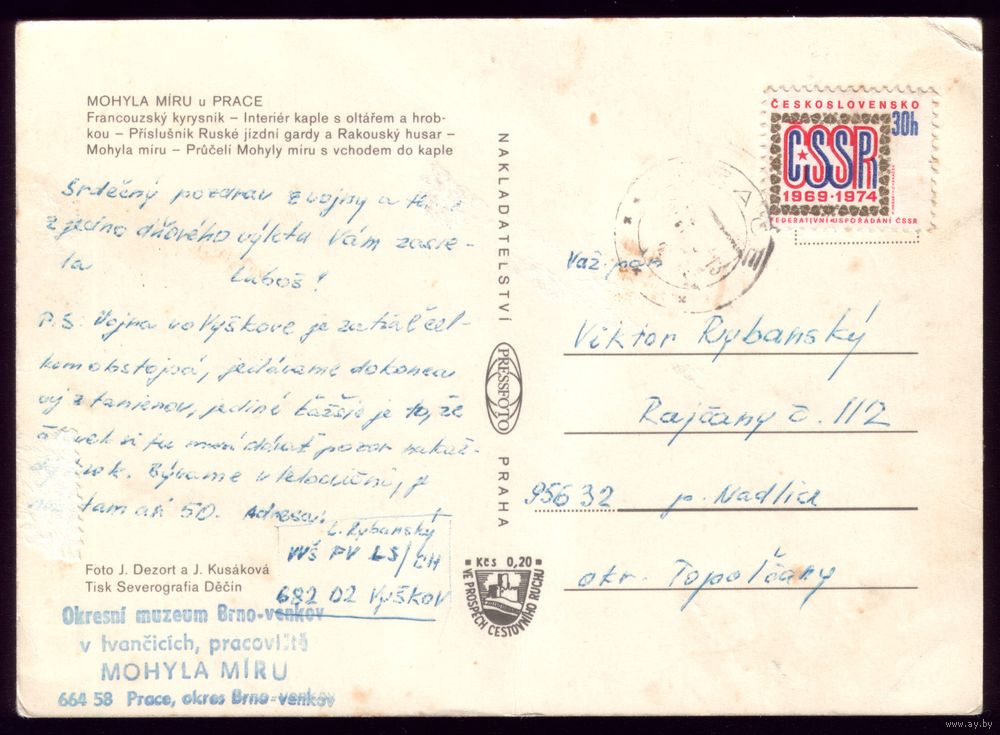 MOHYLA MÍRU u PRACE
Francouzský kyrysník – Interiér kaple s oltářem a hrob-
kou – Příslušník Ruské jízdní gardy a Rakouský husar –
Mohyla míru – Průčelí Mohyly míru s vchodem do kaple
Srdečný pozdrav z vojny a
z jedno dňového výletu Vám zasie-
la Luboš!
P.S. Vojna vo Vyškove je zatiaľ cel-
kom obstojná, jedávame dokonca
aj z tanierov, jediné ťažšie je to, že
si tu musí dávať pozor na kaž-
krok. Bývame v telocvični, je
tam ak 50. Adresa:
L. Rybanský
VVŠ PV LS/CH
682 02 Vyškov
Foto J. Dezort a J. Kusáková
Tisk Severografia Děčín
Okresní muzeum Brno-venkov
v Ivančicích, pracoviště
MOHYLA MÍRU
664 58 Prace, okres Brno-venkov
NAKLADATELSTVÍ PRESSFOTO PRAHA
Kčs 0,20
VE PROSPĚCH CESTOVNÍHO RUCHU
ČESKOSLOVENSKO
30h
ČSSR
1969·1974
FEDERATIVNÍ USPOŘÁDÁNÍ ČSSR
Váž. pán
Viktor Rybanský
Rajčany č. 112
956 32 p. Nadlice
okr. Topoľčany
www.ay.by